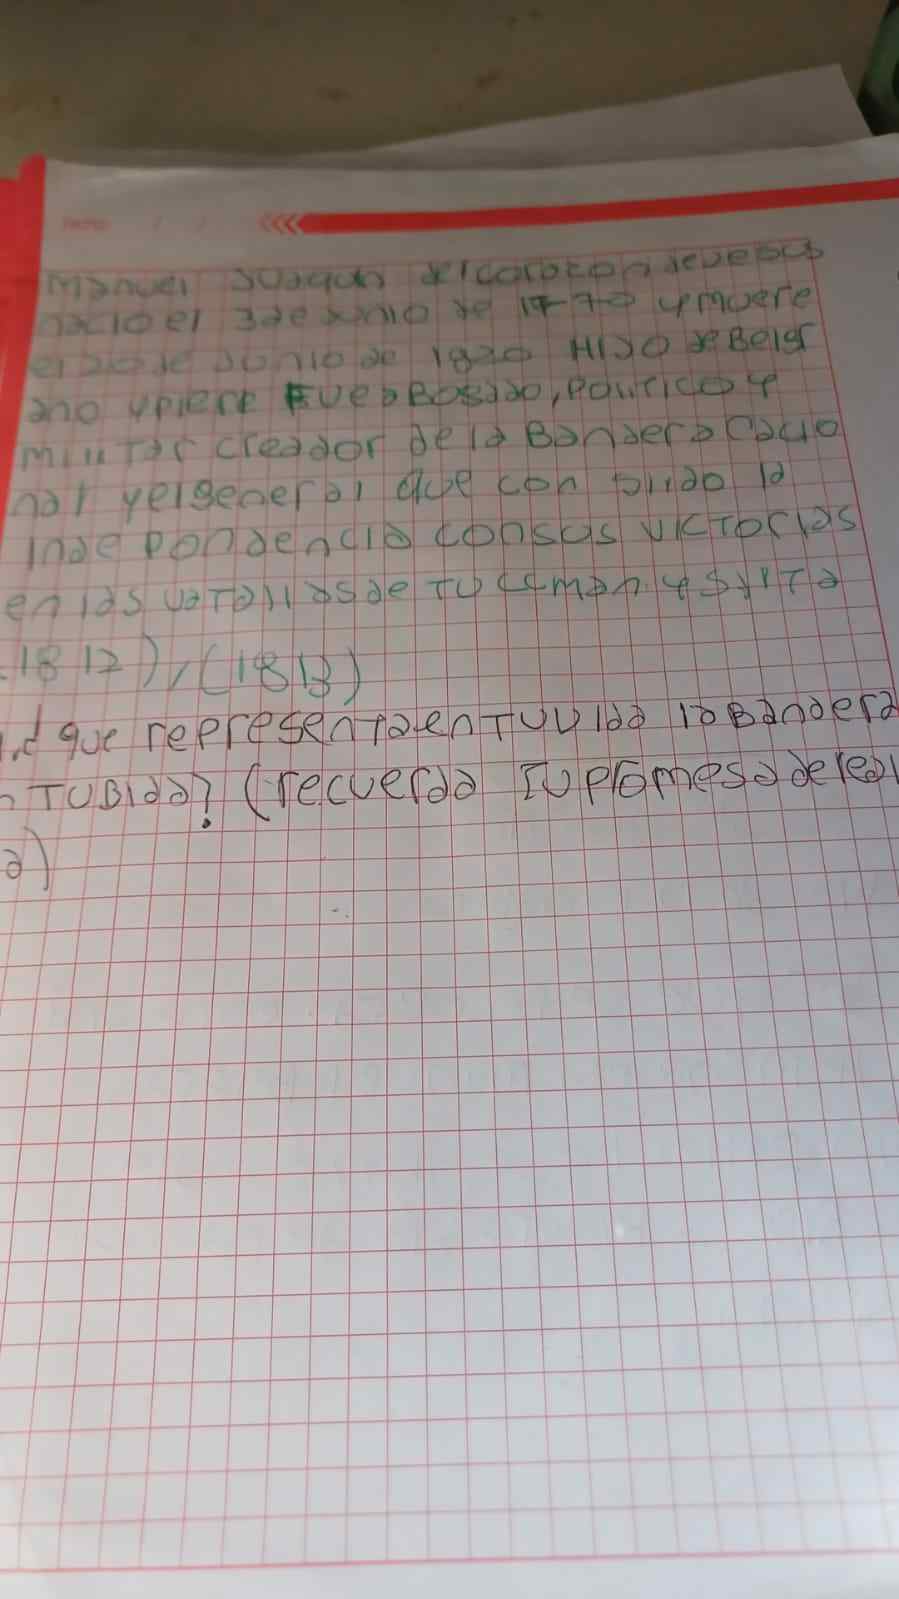 Manuel Juaquin del corazon de Jesus
nacio el 3 de Junio de 1770 y muere
el 20 de Junio de 1820 HIJO de Belgr
ano y Pieri Fue abogado, político y
militar creador de la Bandera Cacio
nal y el general que con
Inde pondencia con sus victorias
en las vatallas de Tucuman y Salta
1812), (1813)
d que representa en tu vida la Bandera
n TUBida? (recuerda Tu promesa de leal
a)